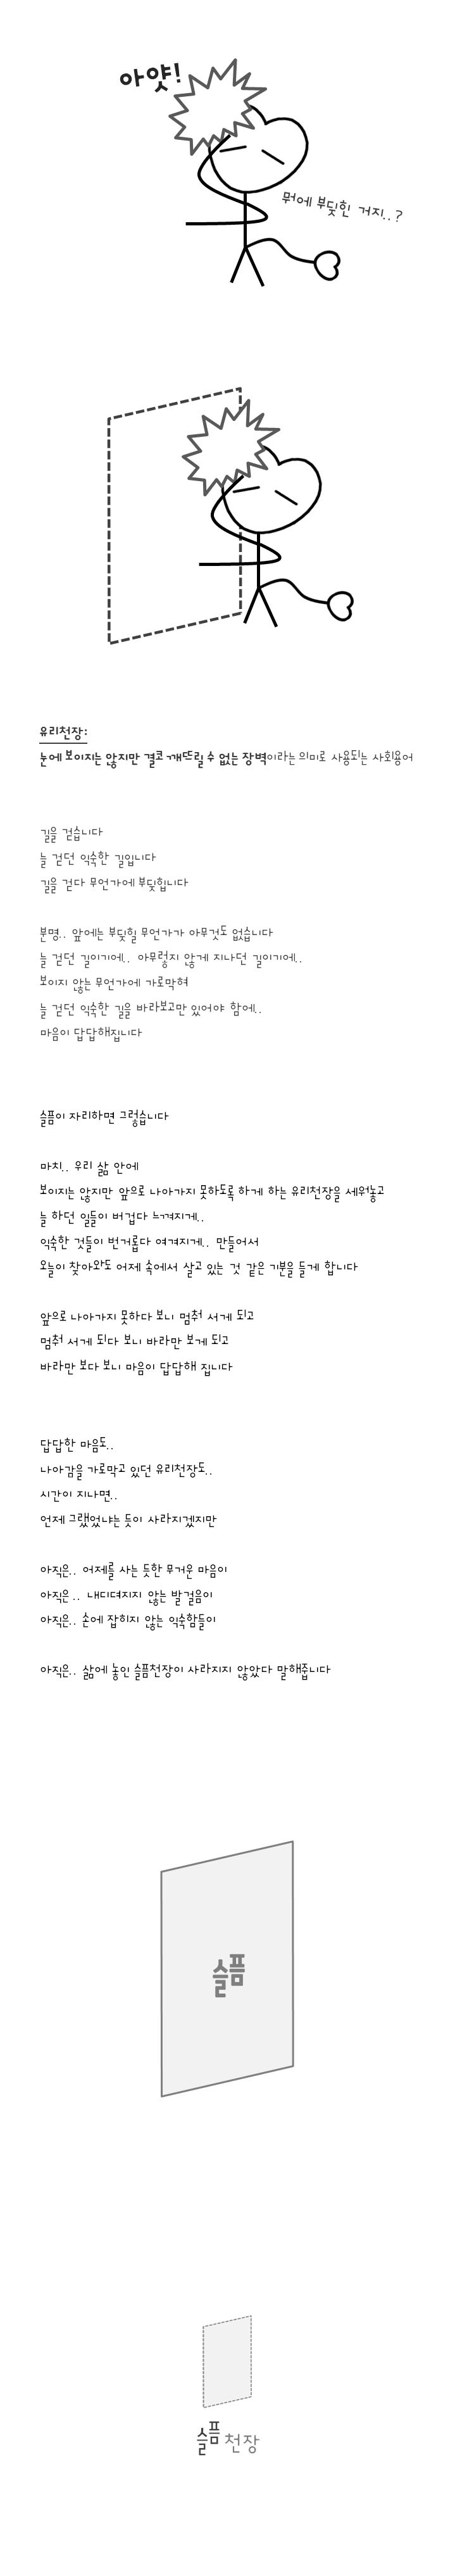 아얏!
뭐에 부딪힌 거지..?
유리천장:
눈에 보이지는 않지만 결코 깨뜨릴 수 없는 장벽이라는 의미로 사용되는 사회용어
길을 걷습니다
늘 걷던 익숙한 길입니다
길을 걷다 무언가에 부딪힙니다
분명.. 앞에는 부딪힐 무언가가 아무것도 없습니다
늘 걷던 길이기에.. 아무렇지 않게 지나던 길이기에..
보이지 않는 무언가에 가로막혀
늘 걷던 익숙한 길을 바라보고만 있어야 함에..
마음이 답답해집니다
슬픔이 자리하면 그렇습니다
마치.. 우리 삶 안에
보이지는 않지만 앞으로 나아가지 못하도록 하게 하는 유리천장을 세워놓고
늘 하던 일들이 버겁다 느껴지게..
익숙한 것들이 번거롭다 여겨지게.. 만들어서
오늘이 찾아와도 어제 속에서 살고 있는 것 같은 기분을 들게 합니다
앞으로 나아가지 못하다 보니 멈춰 서게 되고
멈춰 서게 되다 보니 바라만 보게 되고
바라만 보다 보니 마음이 답답해 집니다
답답한 마음도..
나아감을 가로막고 있던 유리천장도..
시간이 지나면..
언제 그랬었냐는 듯이 사라지겠지만
아직은.. 어제를 사는 듯한 무거운 마음이
아직은 .. 내디뎌지지 않는 발걸음이
아직은.. 손에 잡히지 않는 익숙함들이
아직은.. 삶에 놓인 슬픔천장이 사라지지 않았다 말해줍니다
슬픔
슬픔 천장